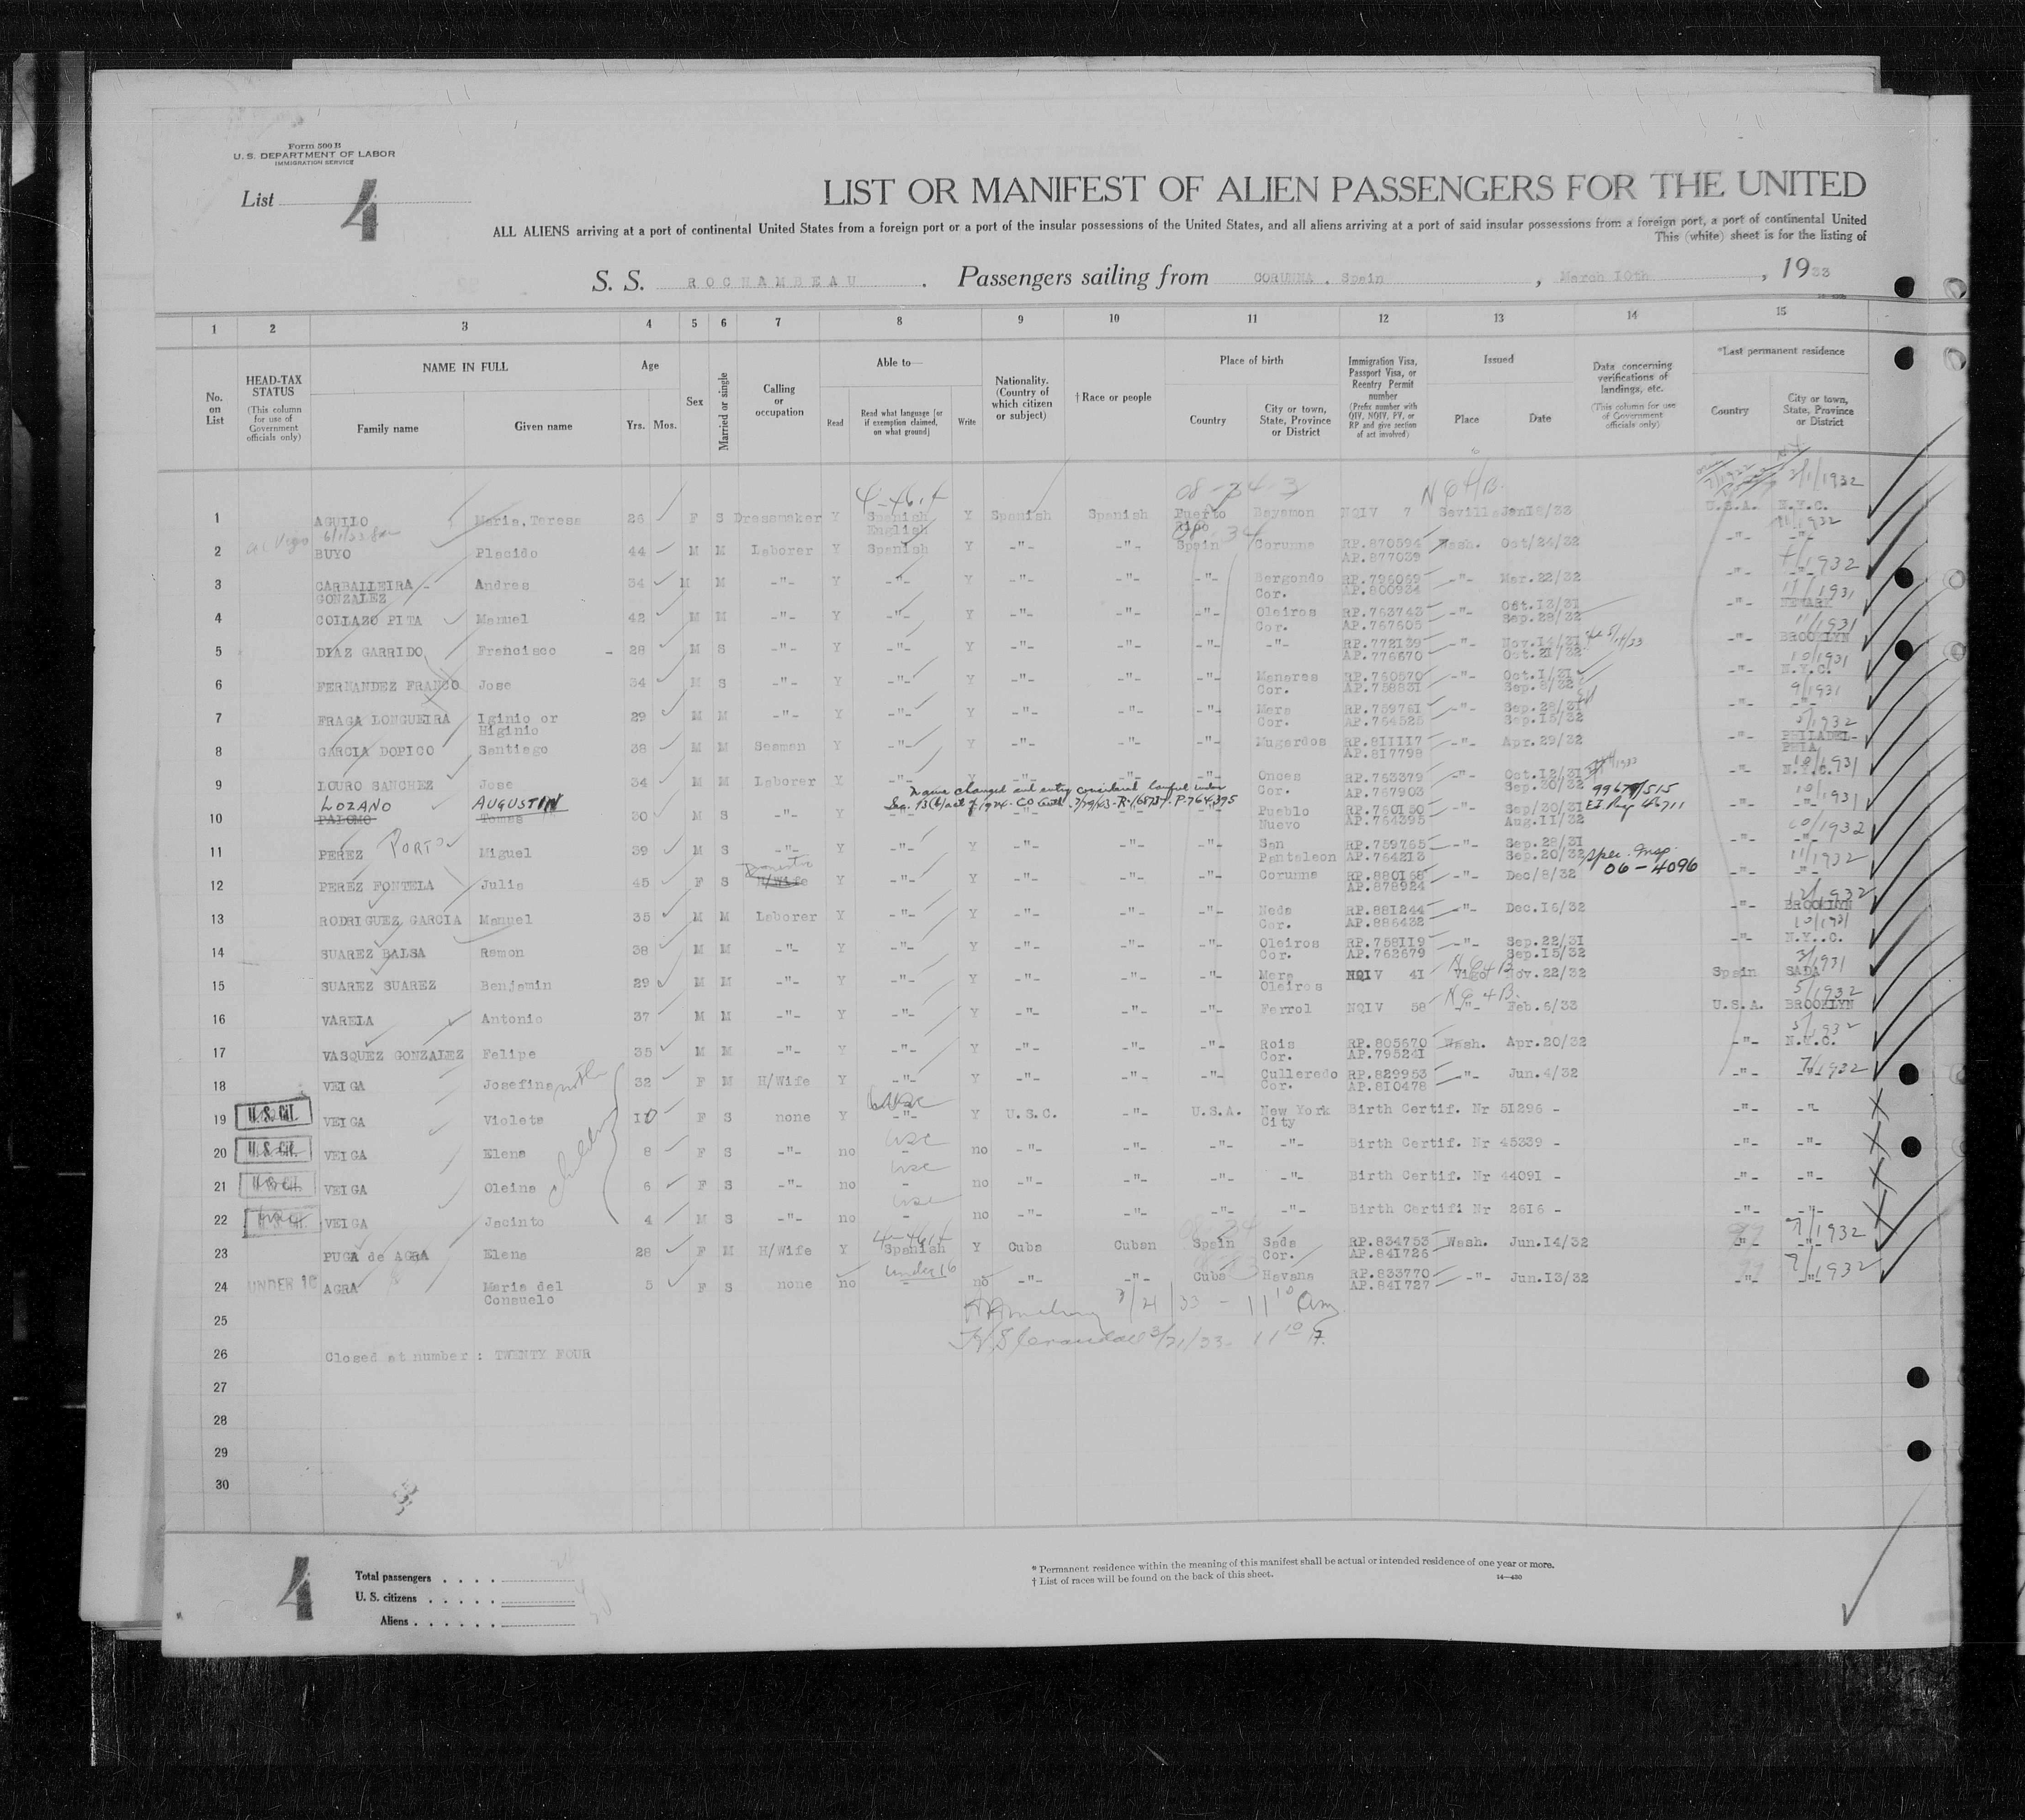 Form 500 B
U. S. DEPARTMENT OF LABOR
IMMIGRATION SERVICE
List 4
LIST OR MANIFEST OF ALIEN PASSENGERS FOR THE UNITED
ALL ALIENS arriving at a port of continental United States from a foreign port or a port of the insular possessions of the United States, and all aliens arriving at a port of said insular possessions from a foreign port, a port of continental United
This (white) sheet is for the listing of
S. S. ROCHAMBEAU . Passengers sailing from CORUNNA . Spain , March 10th , 1933
1 2 3 4 5 6 7 8 9 10 11 12 13 14 15
No. on List
HEAD-TAX STATUS (This column for use of Government officials only)
NAME IN FULL
Family name Given name
Age
Yrs. Mos.
Sex
Married or single
Calling or occupation
Able to—
Read Read what language [or if exemption claimed, on what ground] Write
Nationality. (Country of which citizen or subject)
† Race or people
Place of birth
Country City or town, State, Province or District
Immigration Visa, Passport Visa, or Reentry Permit number (Prefix number with QIV, NQIV, PV, or RP and give section of act involved)
Issued
Place Date
Data concerning verifications of landings, etc. (This column for use of Government officials only)
*Last permanent residence
Country City or town, State, Province or District
4-4614 08-34-3 N 64B. 2/1/1932
1 AGUILO Maria.Teresa 26 F S Dressmaker Y Spanish English Y Spanish Spanish Puerto Rico Bayamon NQIV 7 Seville Jan18/33 U.S.A. N.Y.C.
08-34 11/1932
2 BUYO Placido 44 M M Laborer Y Spanish Y -"- -"- Spain Corunna RP.870594 AP.877039 Wash. Oct/24/32 -"- -"-
7/1932
3 CARBALLEIRA - GONZALEZ Andres 34 M M -"- Y -"- Y -"- -"- -"- Bergondo Cor. RP.796069 AP.800934 -"- Mar.22/32 -"- -"-
11/1931
4 COLLAZO PITA Manuel 42 M M -"- Y -"- Y -"- -"- -"- Oleiros Cor. RP.763743 AP.767605 -"- Oct.13/31 Sep.28/32 -"- NEWARK
11/1931
5 DIAZ GARRIDO Francisco - 28 M S -"- Y -"- Y -"- -"- -"- -"- RP.772139 AP.776670 -"- Nov.14/31 Oct.21/32 -"- BROOKLYN
10/1931
6 FERNANDEZ FRANCO Jose 34 M S -"- Y -"- Y -"- -"- -"- Meneres Cor. RP.760570 AP.758831 -"- Oct.1/31 Sep.8/32 -"- N.Y.C.
9/1931
7 FRAGA LONGUEIRA Iginio or Higinio 29 M M -"- Y -"- Y -"- -"- -"- Mera Cor. RP.759761 AP.764525 -"- Sep.28/31 Sep.15/32 -"- -"-
5/1932
8 GARCIA DOPICO Santiago 38 M M Seaman Y -"- Y -"- -"- -"- Mugardos RP.811117 AP.817798 -"- Apr.29/32 -"- PHILADEL-PHIA
10/1931
9 LOURO SANCHEZ Jose 34 M M Laborer Y -"- Y -"- -"- -"- Onces Cor. RP.763379 AP.767903 -"- Oct.12/31 Sep.30/32 -"- N.Y.C.
Name changed and entry considered lawful under
LOZANO AUGUSTIN Sec. 13(b) act of 1924 - CO
10 PALOMO Tomas 30 M S -"- Y -"- Y -"- -"- -"- Pueblo Nuevo RP.760150 AP.764395 -"- Sep/30/31 Aug.11/32 -"- -"-
10/1932
11 PEREZ PORTO Miguel 39 M S -"- Y -"- Y -"- -"- -"- San Pantaleon RP.759765 AP.764213 -"- Sep.28/31 Sep.20/32 -"- -"-
Domestic Spec. Insp. 06-4096 11/1932
12 PEREZ FONTELA Julia 45 F S H/Wife Y -"- Y -"- -"- -"- Corunna RP.880168 AP.878924 -"- Dec/8/32 -"- -"-
12/1932
13 RODRIGUEZ GARCIA Manuel 35 M M Laborer Y -"- Y -"- -"- -"- Neda Cor. RP.881244 AP.886432 -"- Dec.16/32 -"- BROOKLYN
10/1931
14 SUAREZ BALSA Ramon 38 M M -"- Y -"- Y -"- -"- -"- Oleiros Cor. RP.758119 AP.762679 -"- Sep.22/31 Sep.15/32 -"- N.Y..C.
N 64B 3/1931
15 SUAREZ SUAREZ Benjamin 29 M M -"- Y -"- Y -"- -"- -"- Mera Oleiros NQIV 41 Vigo Nov.22/32 Spain SADA
N 64B. 5/1932
16 VARELA Antonio 37 M M -"- Y -"- Y -"- -"- -"- Ferrol NQIV 58 -"- Feb.6/33 U.S.A. BROOKLYN
5/1932
17 VASQUEZ GONZALEZ Felipe 35 M M -"- Y -"- Y -"- -"- -"- Rois Cor. RP.805670 AP.795241 Wash. Apr.20/32 -"- N.Y.C.
7/1932
18 VEIGA Josefina mother 32 F M H/Wife Y -"- Y -"- -"- -"- Culleredo Cor. RP.829953 AP.810478 -"- Jun.4/32 -"- -"-
19 U.S. CIT. VEIGA Violeta 10 F S none Y -"- Y U.S.C. -"- U.S.A. New York City Birth Certif. Nr 51296 - -"- -"-
children usc
20 U.S. CIT. VEIGA Elena 8 F S -"- no - no -"- -"- -"- -"- Birth Certif. Nr 45339 - -"- -"-
usc
21 U.S. CIT. VEIGA Oleina 6 F S -"- no - no -"- -"- -"- -"- Birth Certif. Nr 44091 - -"- -"-
usc
22 U.S. CIT. VEIGA Jacinto 4 M S -"- no - no -"- -"- -"- -"- Birth Certif. Nr 2616 - -"- -"-
4-4614 08-34 7/1932
23 PUGA de AGRA Elena 28 F M H/Wife Y Spanish Y Cuba Cuban Spain Sada Cor. RP.834753 AP.841726 Wash. Jun.14/32 -"- -"-
Under 16 7/1932
24 UNDER 16 AGRA Maria del Consuelo 5 F S none no - no -"- -"- Cuba Havana RP.833770 AP.841727 -"- Jun.13/32 -"- -"-
25 3/21/33 - 11 10 am
3/21/33 - 11 10
26 Closed at number : TWENTY FOUR
27
28
29
30
4
Total passengers . . . .
U. S. citizens . . . . .
Aliens . . . . . .
* Permanent residence within the meaning of this manifest shall be actual or intended residence of one year or more.
† List of races will be found on the back of this sheet.
14—430